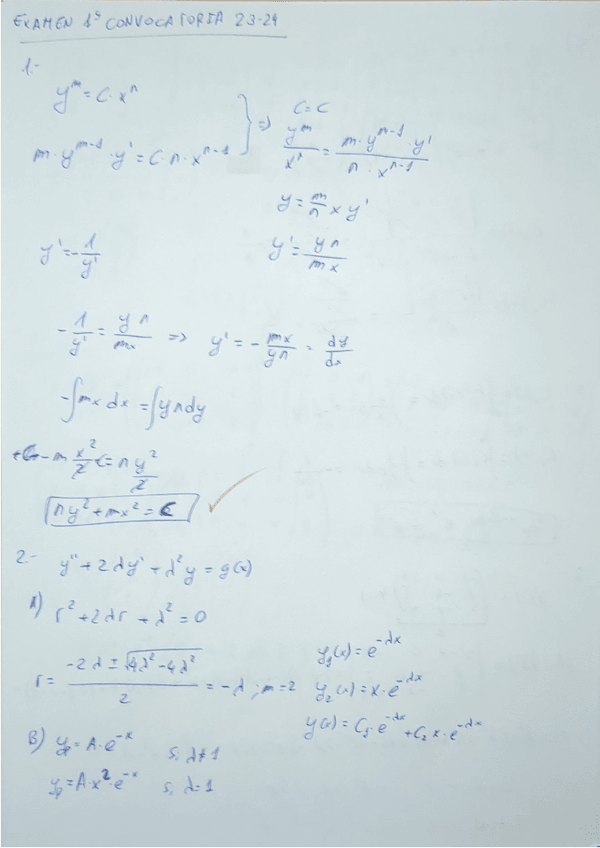 EXAMEN 1ª CONVOCATORIA 23-24
1.-
y^m = C · x^n
m · y^{m-1} · y' = C · n · x^{n-1}
} ⇒ C = C
y^m / x^n = m · y^{m-1} · y' / n · x^{n-1}
y = m/n x y'
y' = - 1/y'
y' = yn / mx
- 1/y' = yn / mx ⇒ y' = - mx / yn = dy/dx
- ∫ mx dx = ∫ yn dy
- m x²/2 + C = n y²/2
ny² + mx² = C ✓
2.- y'' + 2λy' + λ²y = g(x)
A) r² + 2λr + λ² = 0
r = (-2λ ± √(4λ² - 4λ²)) / 2 = -λ ; m = 2
y₁(x) = e^{-λx}
y₂(x) = x · e^{-λx}
y(x) = C₁ · e^{-λx} + C₂ x · e^{-λx}
B) yp = A · e^{-x} si λ ≠ 1
yp = A · x² · e^{-x} si λ = 1